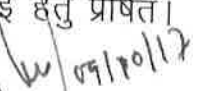 हेतु प्रेषित।
09/10/17